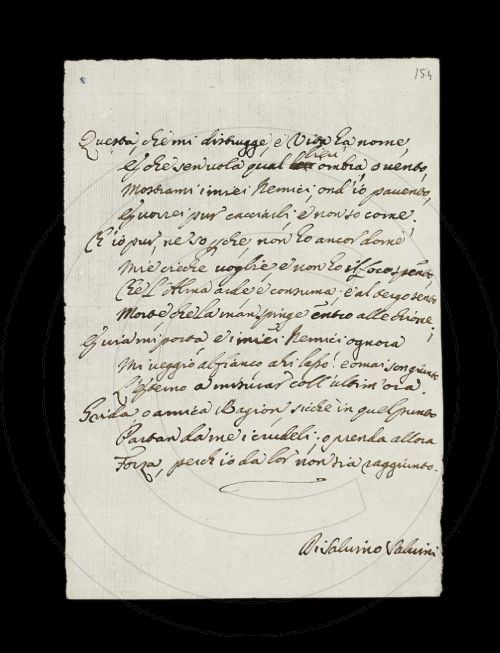 154
Questa, che mi distrugge, e Vita ha nome,
E che sen vola qual lieu ombra, o vento,
Mostrami i miei Nemici, ond' io pavento,
E vorrei pur cacciarli, e non so come;
Ch' io pur, ne so, che, non ho ancor dome
Mie cieche voglie, e non ho il foco spento,
Che L'Alma arde e consuma; e al tergo sento
Morte che la man spinge entro alle chiome;
E via mi porta e i miei Nemici ognora
Mi veggio al fianco ahi lasso! e omai son giunto
L'estremo a misurar coll' ultim' ora.
Guida o amica Ragion, sicche in quel punto
Partan da me i crudeli; o prenda allora
Forza, perch' io da lor non sia raggiunto.
Di Salvino Salvini